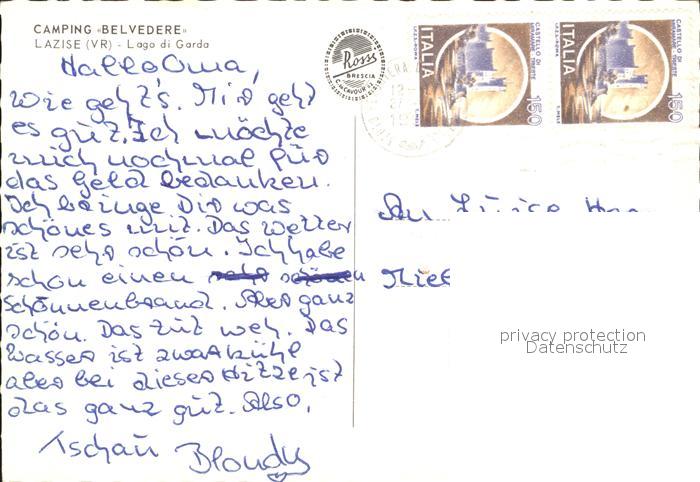 CAMPING «BELVEDERE»
LAZISE (VR) - Lago di Garda
Rossi
BRESCIA
ITALIA
CASTELLO DI
MIRAMARE - TRIESTE
I.P.Z.S.-ROMA
E. MELE
150
ITALIA
CASTELLO DI
MIRAMARE - TRIESTE
I.P.Z.S.-ROMA
E. MELE
150
Hallo Oma,
wie geht's. Mir geht
es gut. Ich möchte
mich nochmal für
das Geld bedanken.
Ich bringe Dir was
schönes mit. Das Wetter
ist sehr schön. Ich habe
schon einen
Schönnenbrand. Aber ganz
schön. Das tut weh. Das
Wasser ist zwar kühl
aber bei dieser Hitze ist
das ganz gut. Also,
Tschau Blondy
An
privacy protection
Datenschutz